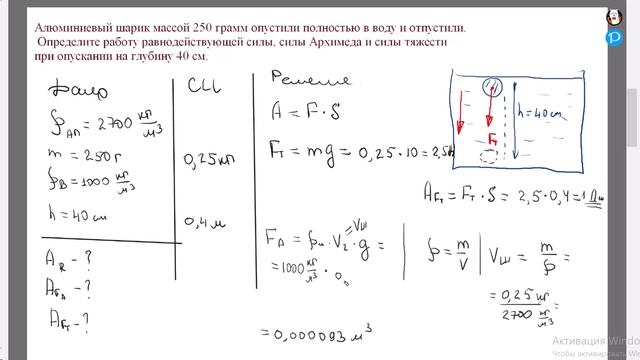 Алюминиевый шарик массой 250 грамм опустили полностью в воду и отпустили.
Определите работу равнодействующей силы, силы Архимеда и силы тяжести
при опускании на глубину 40 см.
Дано СИ Решение
ρ_Ал = 2700 кг/м³
m = 250 г 0,25 кг
ρ_В = 1000 кг/м³
h = 40 см 0,4 м
A_R - ?
A_FА - ?
A_FТ - ?
A = F · S
F_Т = mg = 0,25 · 10 = 2,5Н
h = 40 см
F_Т
A_FТ = F_Т · S = 2,5 · 0,4 = 1 Дж
F_A = ρ_ж · V_2 · g =
= V_ш
= 1000 кг/м³ · 0,
ρ = m/V
V_ш = m/ρ =
= 0,25 кг / 2700 кг/м³ =
= 0,000093 м³
Активация Windo
Чтобы активировать Wi